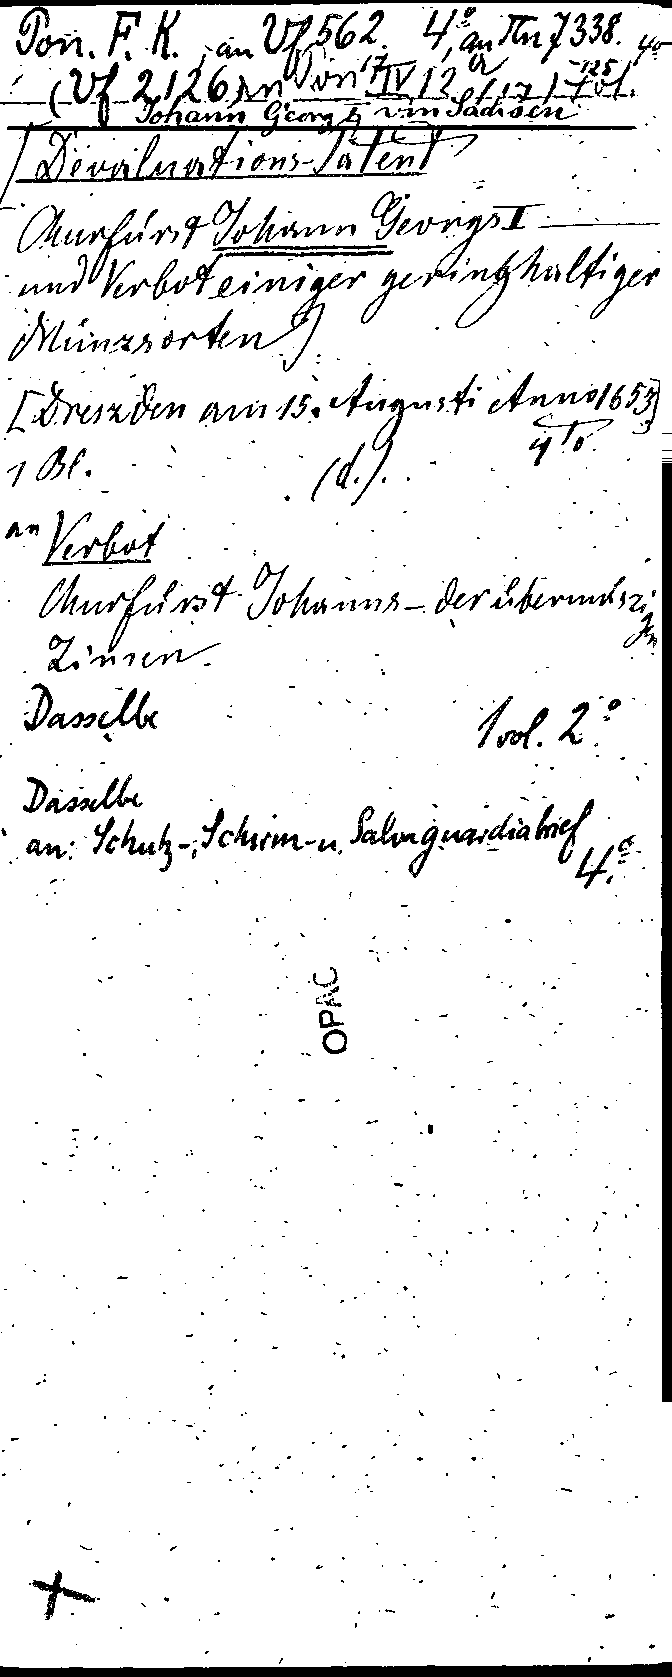 Pon. F. K., an Vf 562. 4°, an Nn 7338. 4°
(Vf 2126, an Pon IV 12
Johann Georg von Sachsen
[Devaluations-Patent
Churfürst Johann Georgs I
und Verbot einiger geringhaltiger
Münzsorten]
[Dreszden am 15. Augusti Anno 1653]
4to
1 Bl. (d.).
an Verbot
Churfürst Johanns - der übermäszigen
Zinsen.
Dasselbe 1 vol. 2°.
Dasselbe
an: Schutz-, Schirm- u. Salvaguardiabrief
4°.
OPAC